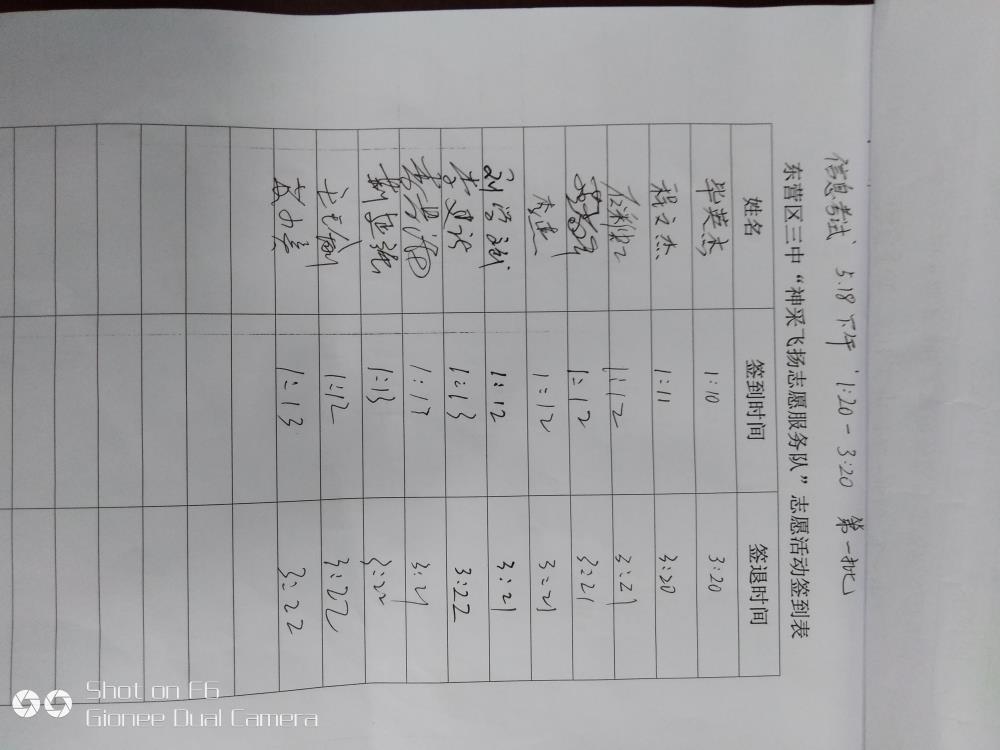 信息考试 5.18下午 1:20-3:20 第一批
东营区三中“神采飞扬志愿服务队”志愿活动签到表
姓名 签到时间 签退时间
毕英杰 1:10 3:20
程文杰 1:11 3:20
1:12 3:21
1:12 3:21
李 1:12 3:21
刘 1:12 3:21
李 1:13 3:22
1:13 3:21
1:13 3:22
1:12 3:22
1:13 3:22
Shot on F6
Gionee Dual Camera